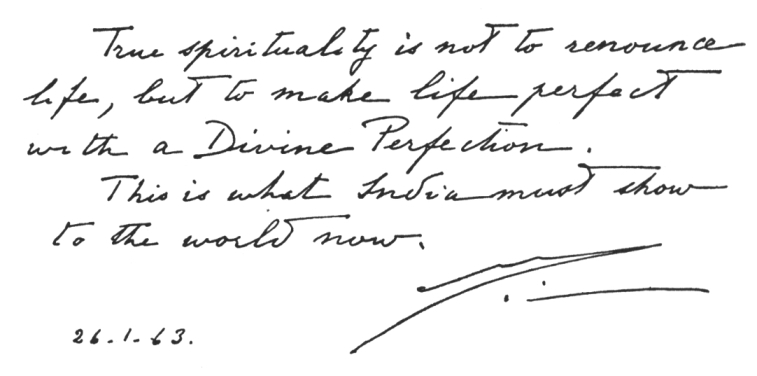 True spirituality is not to renounce
life, but to make life perfect
with a Divine Perfection.
This is what India must show
to the world now.
26-1-63.